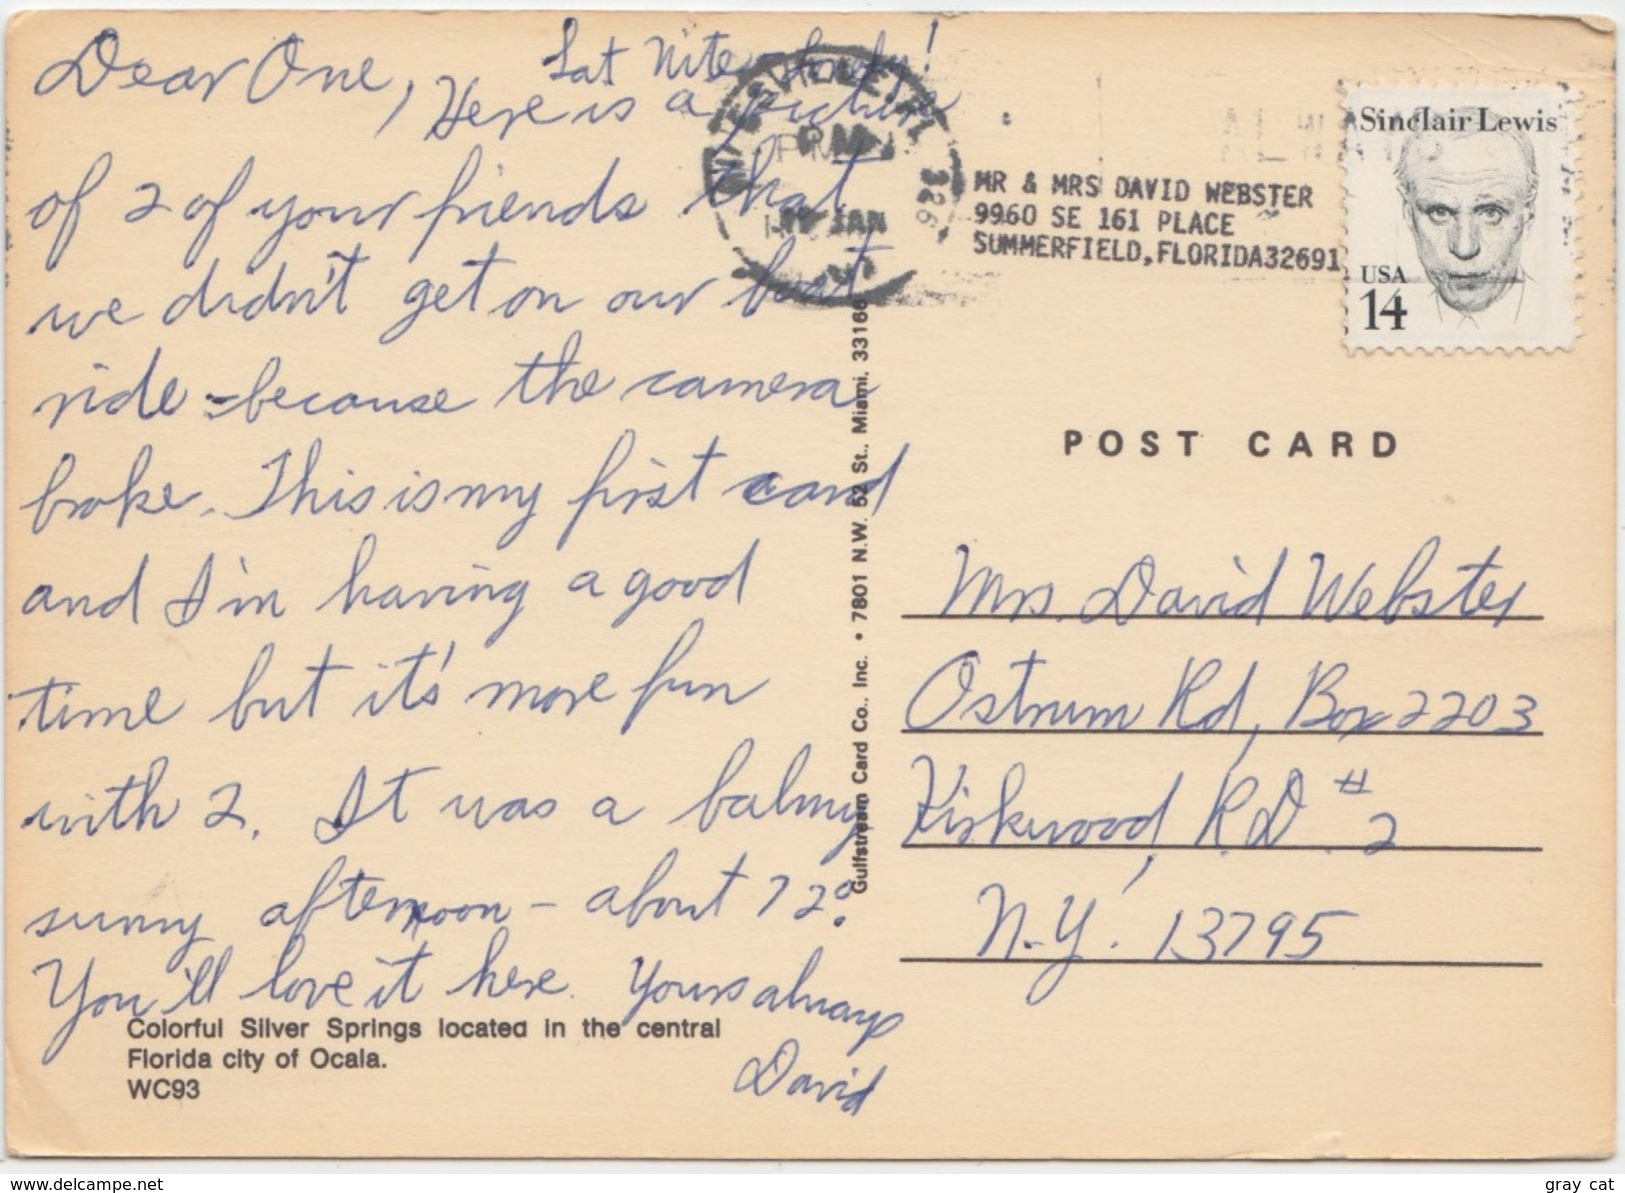 Sat Nite
Dear One,
Here is a picture
of 2 of your friends that
we didn't get on our boat
ride - because the camera
broke. This is my first card
and I'm having a good
time but it's more fun
with 2. It was a balmy
sunny afternoon - about 72°.
You'll love it here. Yours always
David
Colorful Silver Springs located in the central
Florida city of Ocala.
WC93
Gulfstream Card Co., Inc. • 7801 N.W. 52 St., Miami. 33166
PM
JAN
326
MR & MRS DAVID WEBSTER
9960 SE 161 PLACE
SUMMERFIELD, FLORIDA32691
Sinclair Lewis
USA
14
POST CARD
Mrs. David Webster
Ostrum Rd, Box 2203
Kirkwood, R.D. #2
N.Y. 13795
delcampe.net
gray cat